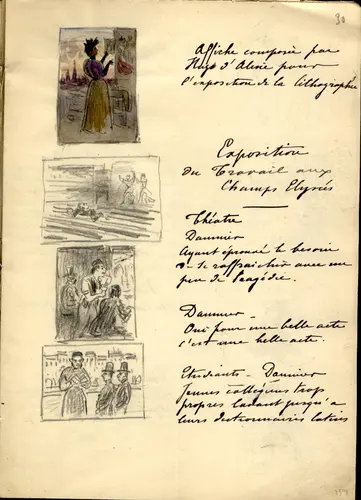 30
Affiche composée par
Hugo d'Alesi pour
l'exposition de la lithographie
Exposition
du Travail aux
Champs Elysées
Théatre
Daumier
Ayant éprouvé le besoin
de se raffraichir avec un
peu de tragédie.
Daumier
Oui pour une belle acte
c'est une belle acte.
Etudiants - Daumier
Jeunes collégiens trop
propres lavant jusqu'a
leurs dictionnaires latins